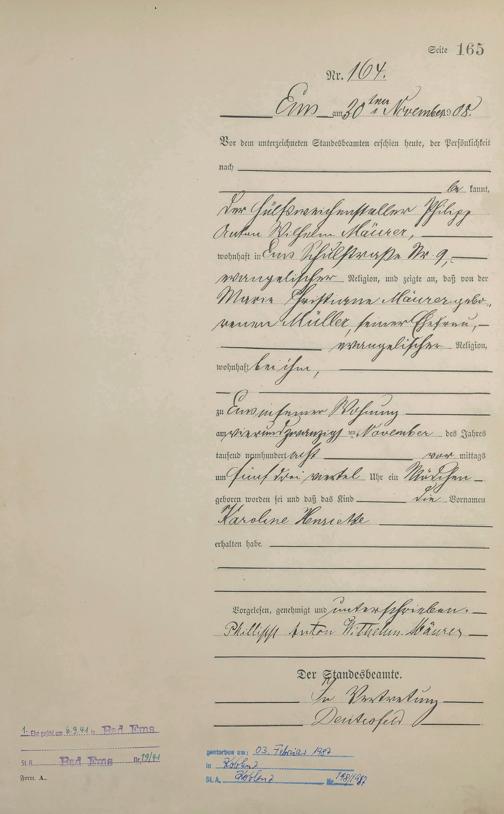 Seite 165
Nr. 164.
Ems am 30ten November 1908.
Vor dem unterzeichneten Standesbeamten erschien heute, der Persönlichkeit
nach
be kannt,
der Hülfsweichensteller Philipp
Anton Wilhelm Mäurer,
wohnhaft in Ems Schulstraße Nr. 9,
evangelischer Religion, und zeigte an, daß von der
Marie Christiane Mäurer gebo-
renen Müller, seiner Ehefrau,
evangelischer Religion,
wohnhaft bei ihm,
zu Ems in seiner Wohnung
am vierundzwanzigsten November des Jahres
tausend neunhundert acht vor mittags
um fünf drei viertel Uhr ein Mädchen
geboren worden sei und daß das Kind die Vornamen
Karoline Henriette
erhalten habe.
Vorgelesen, genehmigt und unterschrieben.
Phillipp Anton Wilhelm Mäurer
Der Standesbeamte.
In Vertretung
1. Eheschl. am 6.9.41 in Bad Ems
St.A. Bad Ems Nr. 19/41
Form. A.
gestorben am: 03. Februar 1987
in Koblenz
St. A. Koblenz Nr. 198/1987